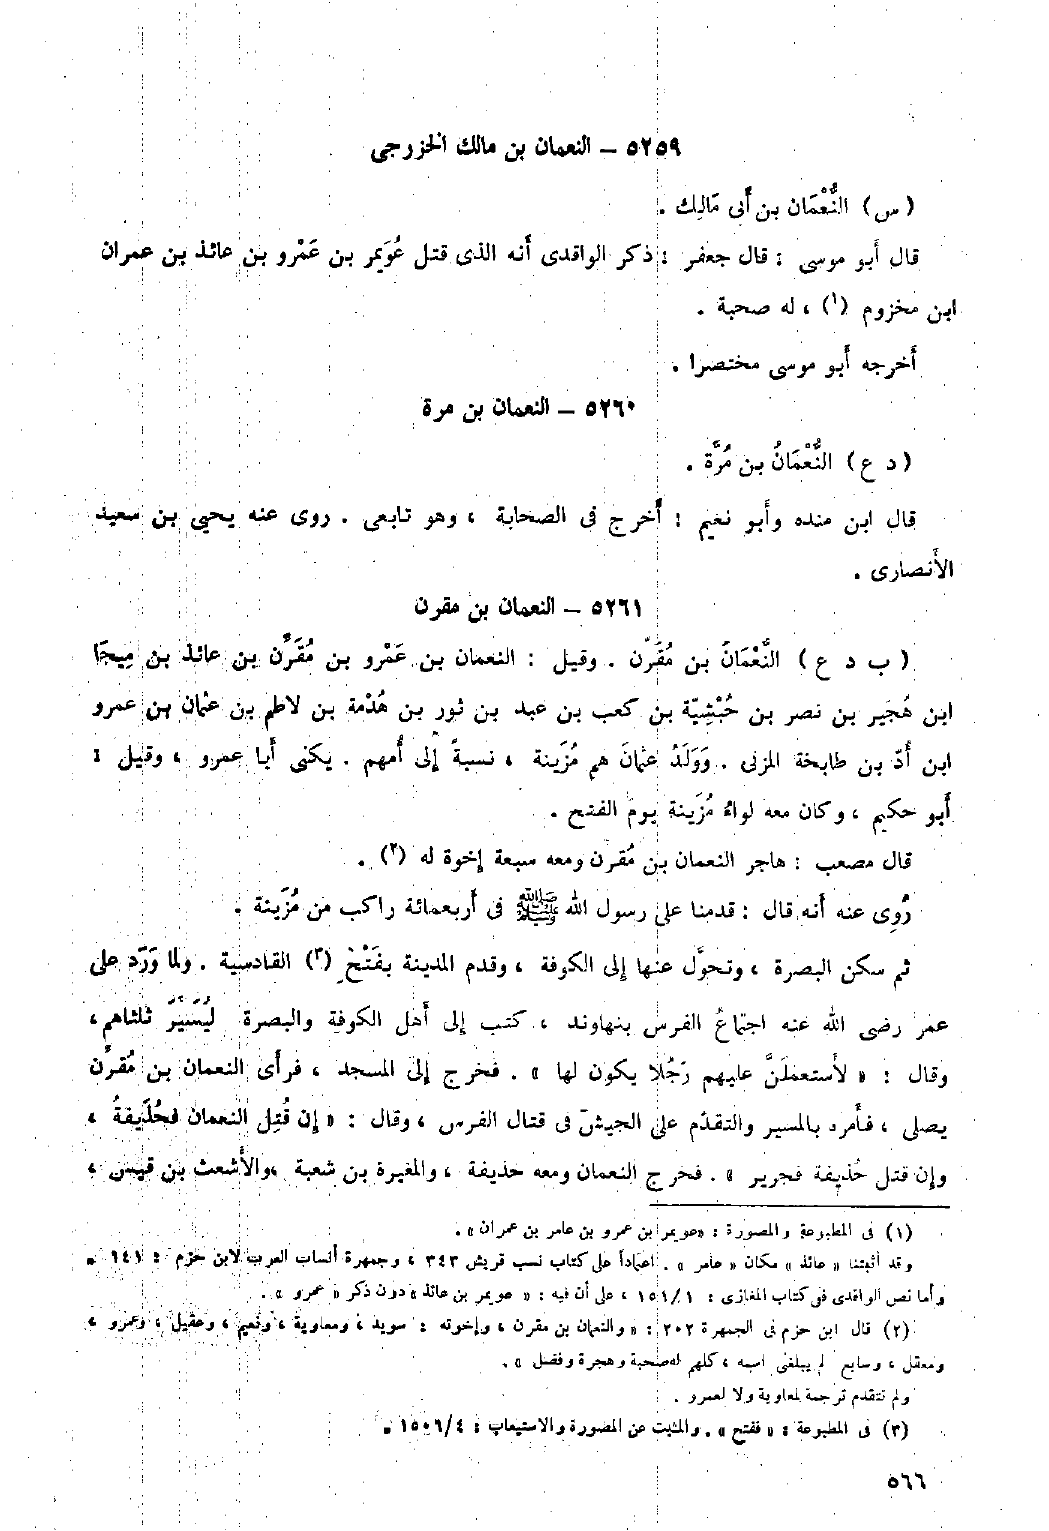 ٥٢٥٩ – النعمان بن مالك الخزرجى
( س ) النُّعْمَان بن أَبى مَالِك .
قال أَبو موسى : قال جعفر : ذكر الواقدى أَنه الذى قتل عُوَيمر بن عَمْرو بن عائذ بن عمران
ابن مخزوم (١) ، له صحبة .
أَخرجه أَبو موسى مختصرا .
٥٢٦٠ – النعمان بن مرة
( د ع ) النُّعْمَانُ بن مُرَّة .
قال ابن منده وأَبو نعيم : أَخرج فى الصحابة ، وهو تابعى . روى عنه يحيى بن سعيد
الأَنصارى .
٥٢٦١ – النعمان بن مقرن
( ب د ع ) النُّعْمَانُ بن مُقَرِّن . وقيل : النعمان بن عَمْرو بن مُقَرِّن بن عائذ بن مِيجَا
ابن هُجَير بن نصر بن حُبْشِيّة بن كعب بن عبد بن ثور بن هُدْمة بن لاطم بن عثمان بن عمرو
ابن أُدّ بن طابخة المزنى . وَوَلَدُ عثمانَ هم مُزَينة ، نسبةً إِلى أُمهم . يكنى أَبا عمرو ، وقيل :
أَبو حكيم ، وكان معه لواءُ مُزَينة يومَ الفتح .
قال مصعب : هاجر النعمان بن مُقرن ومعه سبعة إِخوة له (٢) .
رُوِى عنه أَنه قال : قدمنا على رسول الله ﷺ فى أَربعمائة راكب من مُزَينة .
ثم سكن البصرة ، وتحوَّل عنها إِلى الكوفة ، وقدم المدينة بفَتْحِ (٣) القادسية . ولما وَرَد على
عمر رضى الله عنه اجتماعُ الفرس بنهاوند ، كتب إِلى أَهل الكوفة والبصرة لِيُسَيِّرَ ثلثاهم ،
وقال : « لأَستعملَنَّ عليهم رَجُلا يكون لها » . فخرج إِلى المسجد ، فرأَى النعمان بن مُقَرِّن
يصلى ، فأَمره بالمسير والتقدّم على الجيش فى قتال الفرس ، وقال : « إِن قُتِل النعمان فحُذَيفةُ ،
وإِن قتل حُذيفة فجرير » . فخرج النعمان ومعه حذيفة ، والمغيرة بن شعبة ، والأَشعث بن قيس ،
(١) فى المطبوعة والمصورة : «عويمر بن عمرو بن عامر بن عمران» .
وقد أثبتنا « عائذ » مكان « عامر » . اعتماداً على كتاب نسب قريش ٣٤٣ ، وجمهرة أنساب العرب لابن حزم : ١٤١ .
وأما نص الواقدى فى كتاب المغازى : ١٥١/١ ، على أن فيه : « عويمر بن عائذ » دون ذكر « عمرو » .
(٢) قال ابن حزم فى الجمهرة ٢٠٢ : « والنعمان بن مقرن ، وإخوته : سويد ، ومعاوية ، ونعيم ، وعقيل ، وعمرو ،
ومعقل ، وسابع لم يبلغنى اسمه ، كلهم له صحبة وهجرة وفضل » .
ولم تتقدم ترجمة لمعاوية ولا لعمرو .
(٣) فى المطبوعة : « ففتح » . والمثبت عن المصورة والاستيعاب : ١٥٠٦/٤ .
٥٦٦